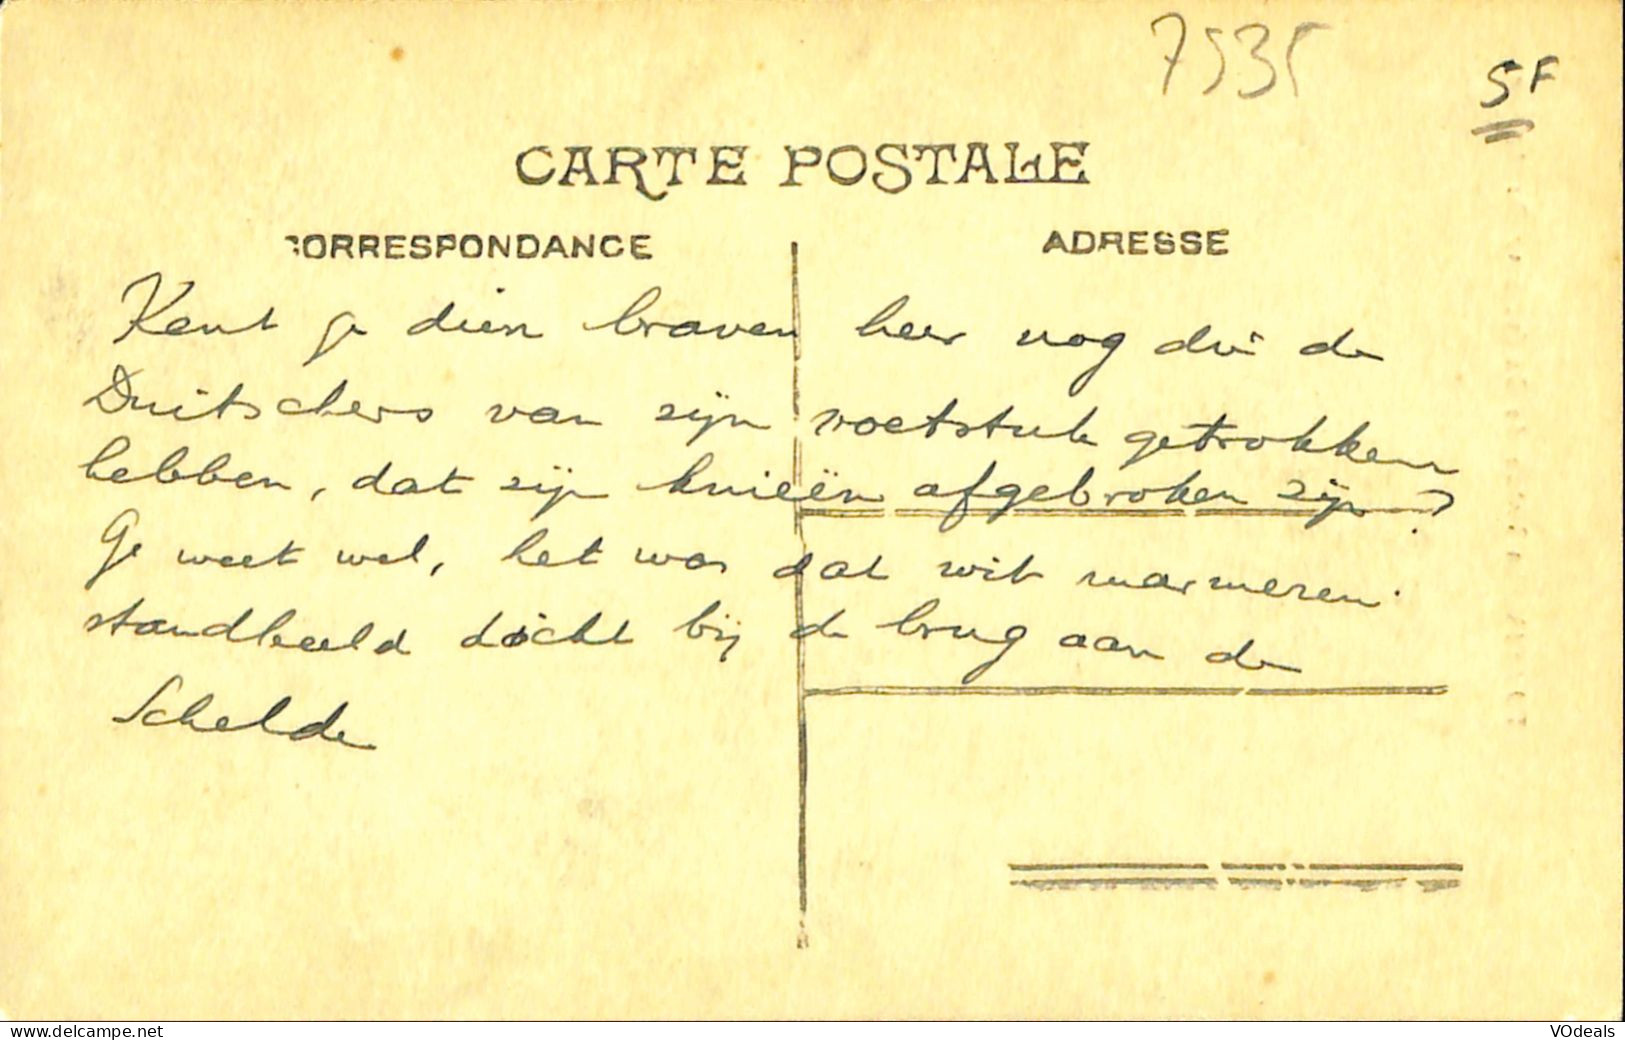 7535
5F
CARTE POSTALE
CORRESPONDANCE
ADRESSE
Kent ge dien braven heer nog die de
Duitschers van zijn voetstuk getrokken
hebben, dat zijn knieën afgebroken zijn?
Ge weet wel, het was dat wit marmeren
standbeeld dicht bij de brug aan de
Schelde
delcampe.net
VOdeals